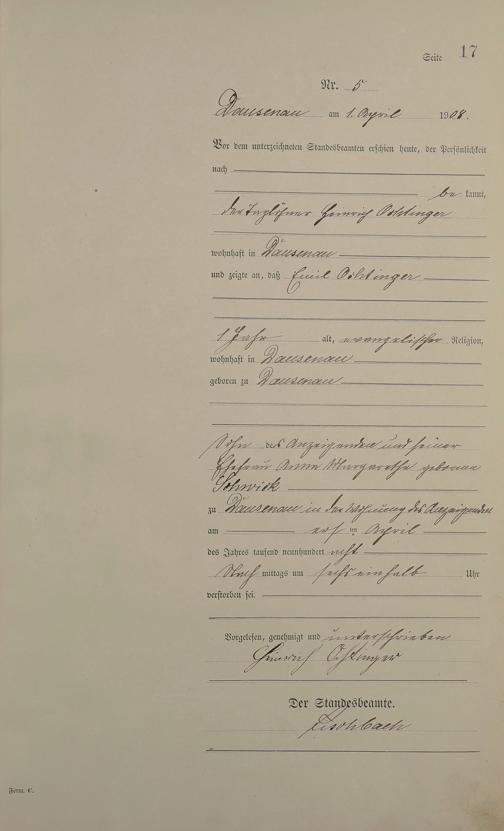 Seite 17
Nr. 5
Dausenau am 1. April 1908.
Vor dem unterzeichneten Standesbeamten erschien heute, der Persönlichkeit
nach
be kannt,
der Taglöhner Heinrich Ochtinger
wohnhaft in Dausenau
und zeigte an, daß Emil Ochtinger
1 Jahr alt, evangelischer Religion,
wohnhaft in Dausenau
geboren zu Dausenau
Sohn des Anzeigenden und seiner
Ehefrau Anna Margarethe geborene
zu Dausenau in der Wohnung des Anzeigenden
am ersten April
des Jahres tausend neunhundert acht
Nach mittags um sechs einhalb Uhr
verstorben sei.
Vorgelesen, genehmigt und unterschrieben
Heinrich Ochtinger
Der Standesbeamte.
Form. C.